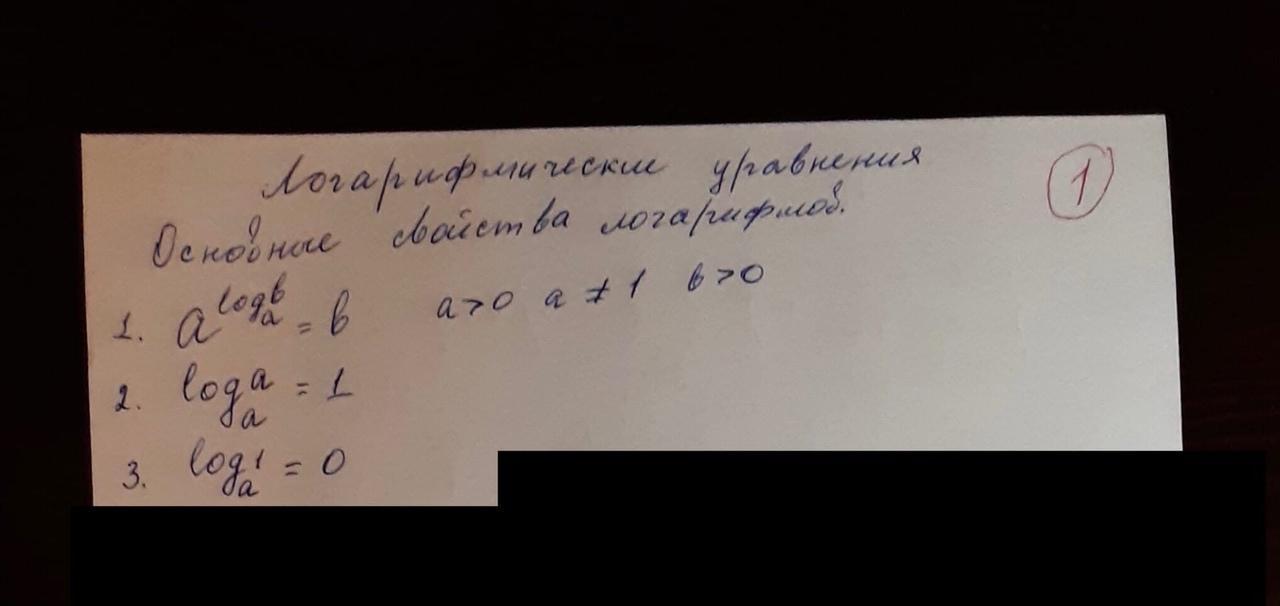 Логарифмические уравнения
1
Основные свойства логарифмов.
1. a^{log_a b} = b   a > 0   a ≠ 1   b > 0
2. log_a a = 1
3. log_a 1 = 0